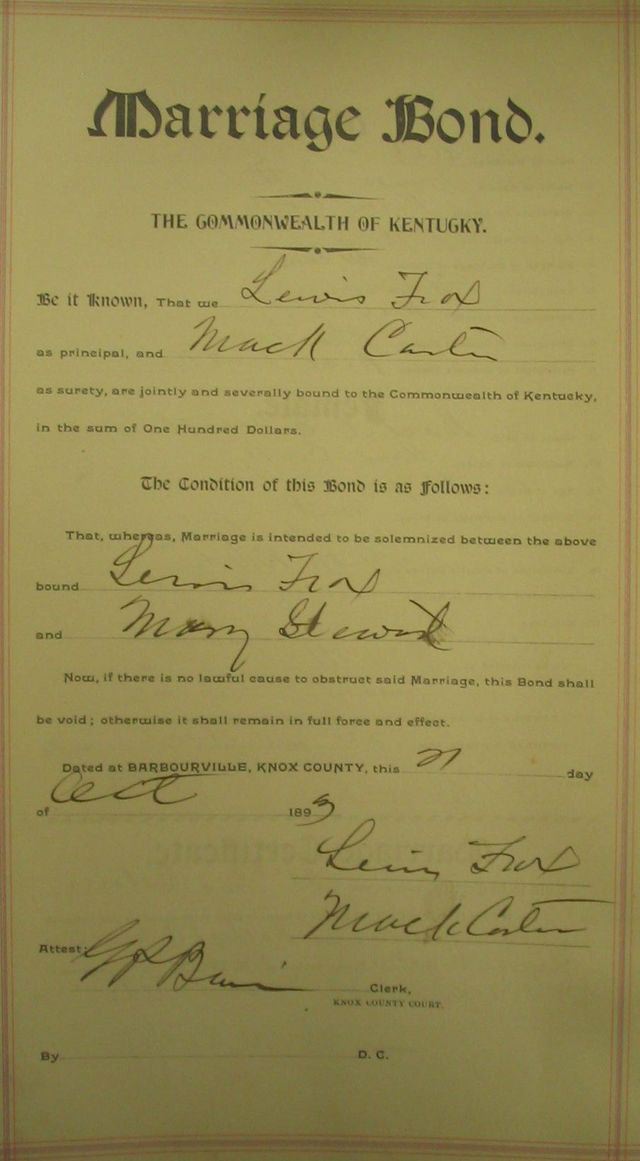 Marriage Bond.
THE COMMONWEALTH OF KENTUCKY.
Be it Known, That we Lewis Frox
as principal, and Mack Carter
as surety, are jointly and severally bound to the Commonwealth of Kentucky,
in the sum of One Hundred Dollars.
The Condition of this Bond is as Follows:
That, whereas, Marriage is intended to be solemnized between the above
bound Lewis Frox
and Mary
Now, if there is no lawful cause to obstruct said Marriage, this Bond shall
be void; otherwise it shall remain in full force and effect.
Dated at BARBOURVILLE, KNOX COUNTY, this 21 day
of Oct 1893
Lewis Frox
Mack Carter
Attest:
Clerk,
KNOX COUNTY COURT.
By D. C.